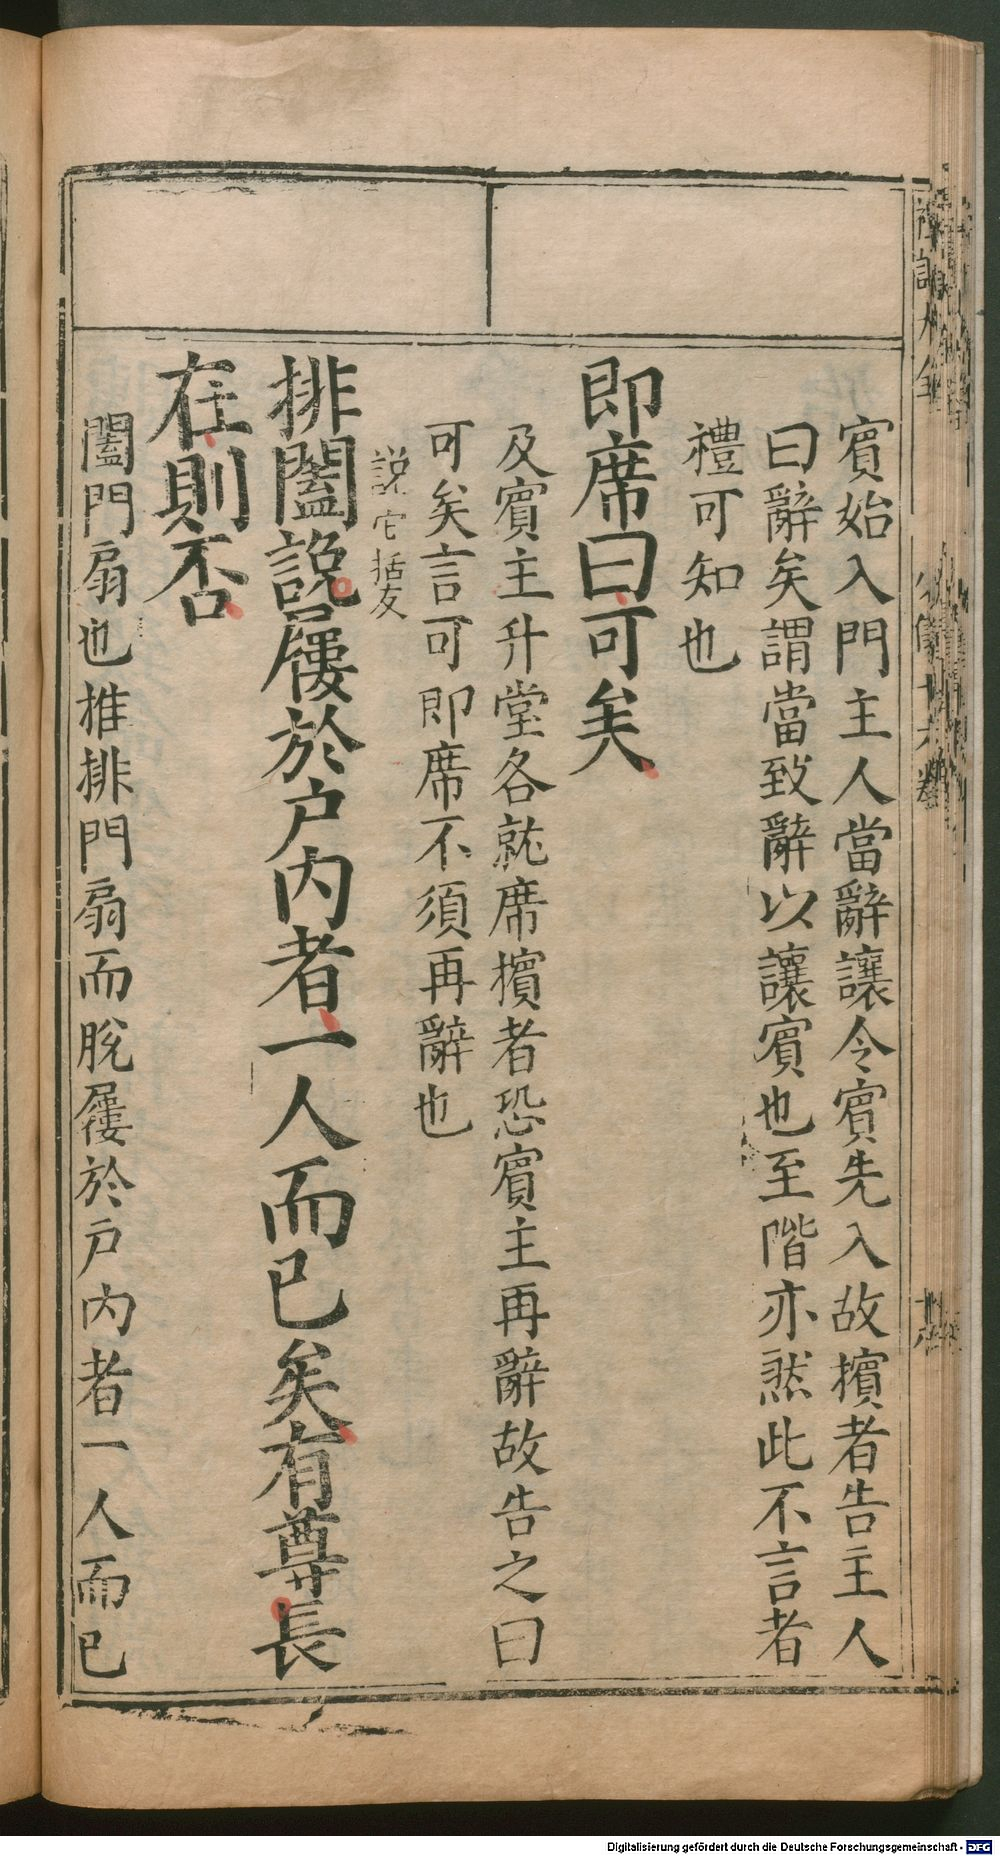 賓始入門主人當辭讓令賓先入故擯者告主人
曰辭矣謂當致辭以讓賓也至階亦然此不言者
禮可知也
即席曰可矣
及賓主升堂各就席擯者恐賓主再辭故告之曰
可矣言可即席不須再辭也
說它括友
排闔說屨於户内者一人而已矣有尊長
在則否
闔門扇也推排門扇而脫屨於户内者一人而已
Digitalisierung gefördert durch die Deutsche Forschungsgemeinschaft - DFG